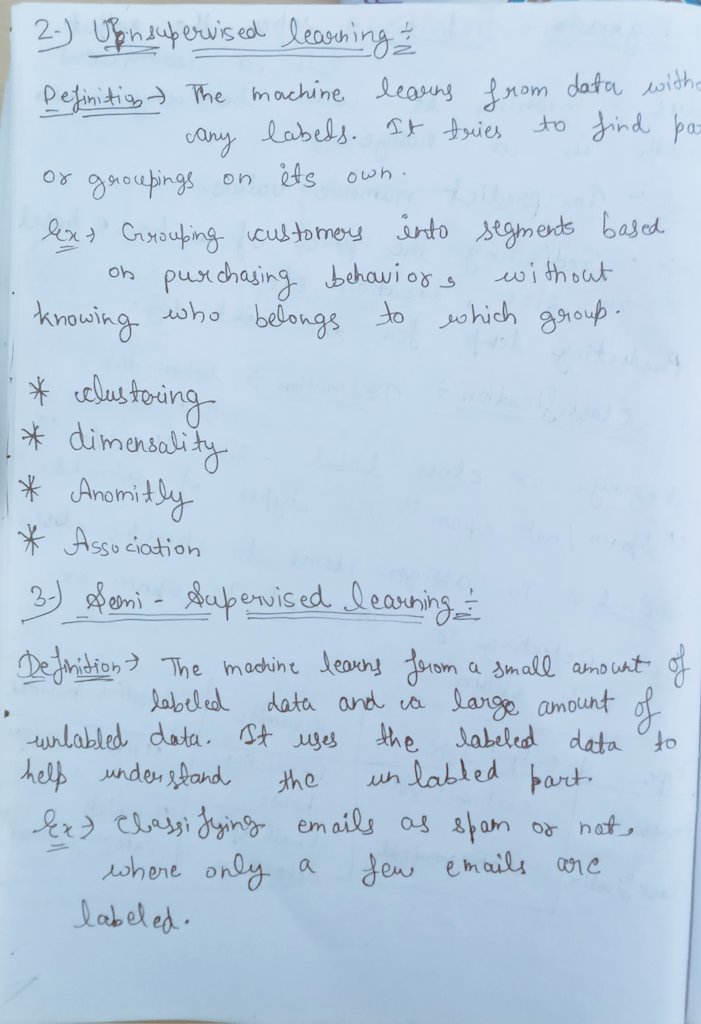 2-) Unsupervised learning ÷
Definition → The machine learns from data witho
any labels. It tries to find pa
or groupings on its own.
Ex → Grouping customers into segments based
on purchasing behavior, without
knowing who belongs to which group.
* clustering
* dimensality
* Anomitly
* Association
3-) Semi - Supervised learning ÷
Definition → The machine learns from a small amount of
labeled data and a large amount of
unlabled data. It uses the labeled data to
help understand the unlabled part.
Ex → Classifying emails as spam or not,
where only a few emails are
labeled.